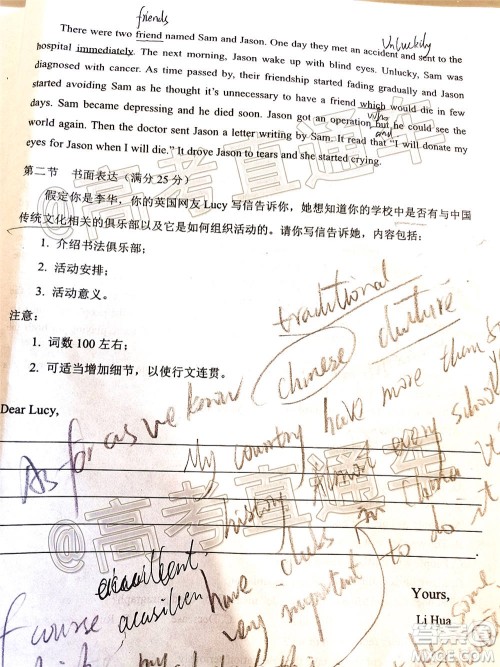 friends
Unluckily
There were two friend named Sam and Jason. One day they met an accident and sent to the
hospital immediately. The next morning, Jason wake up with blind eyes. Unlucky, Sam was
diagnosed with cancer. As time passed by, their friendship started fading gradually and Jason
started avoiding Sam as he thought it's unnecessary to have a friend which would die in few
who
days. Sam became depressing and he died soon. Jason got an operation, but he could see the
and
world again. Then the doctor sent Jason a letter writing by Sam. It read that "I will donate my
eyes for Jason when I will die." It drove Jason to tears and she started crying.
第二节 书面表达（满分 25 分）
假定你是李华，你的英国网友 Lucy 写信告诉你，她想知道你的学校中是否有与中国
传统文化相关的俱乐部以及它是如何组织活动的。请你写信告诉她，内容包括：
1. 介绍书法俱乐部；
2. 活动安排；
3. 活动意义。
traditional
注意：
1. 词数 100 左右；
chinese
2. 可适当增加细节，以使行文连贯。
Dear Lucy,
As far as we know
My country have more them
history Almost every school
have clubs in China
excellent,
very important to do it
Yours,
f course
Li Hua
some
my
@高考直通车
@高考直通车
答案圈
MXQE.COM